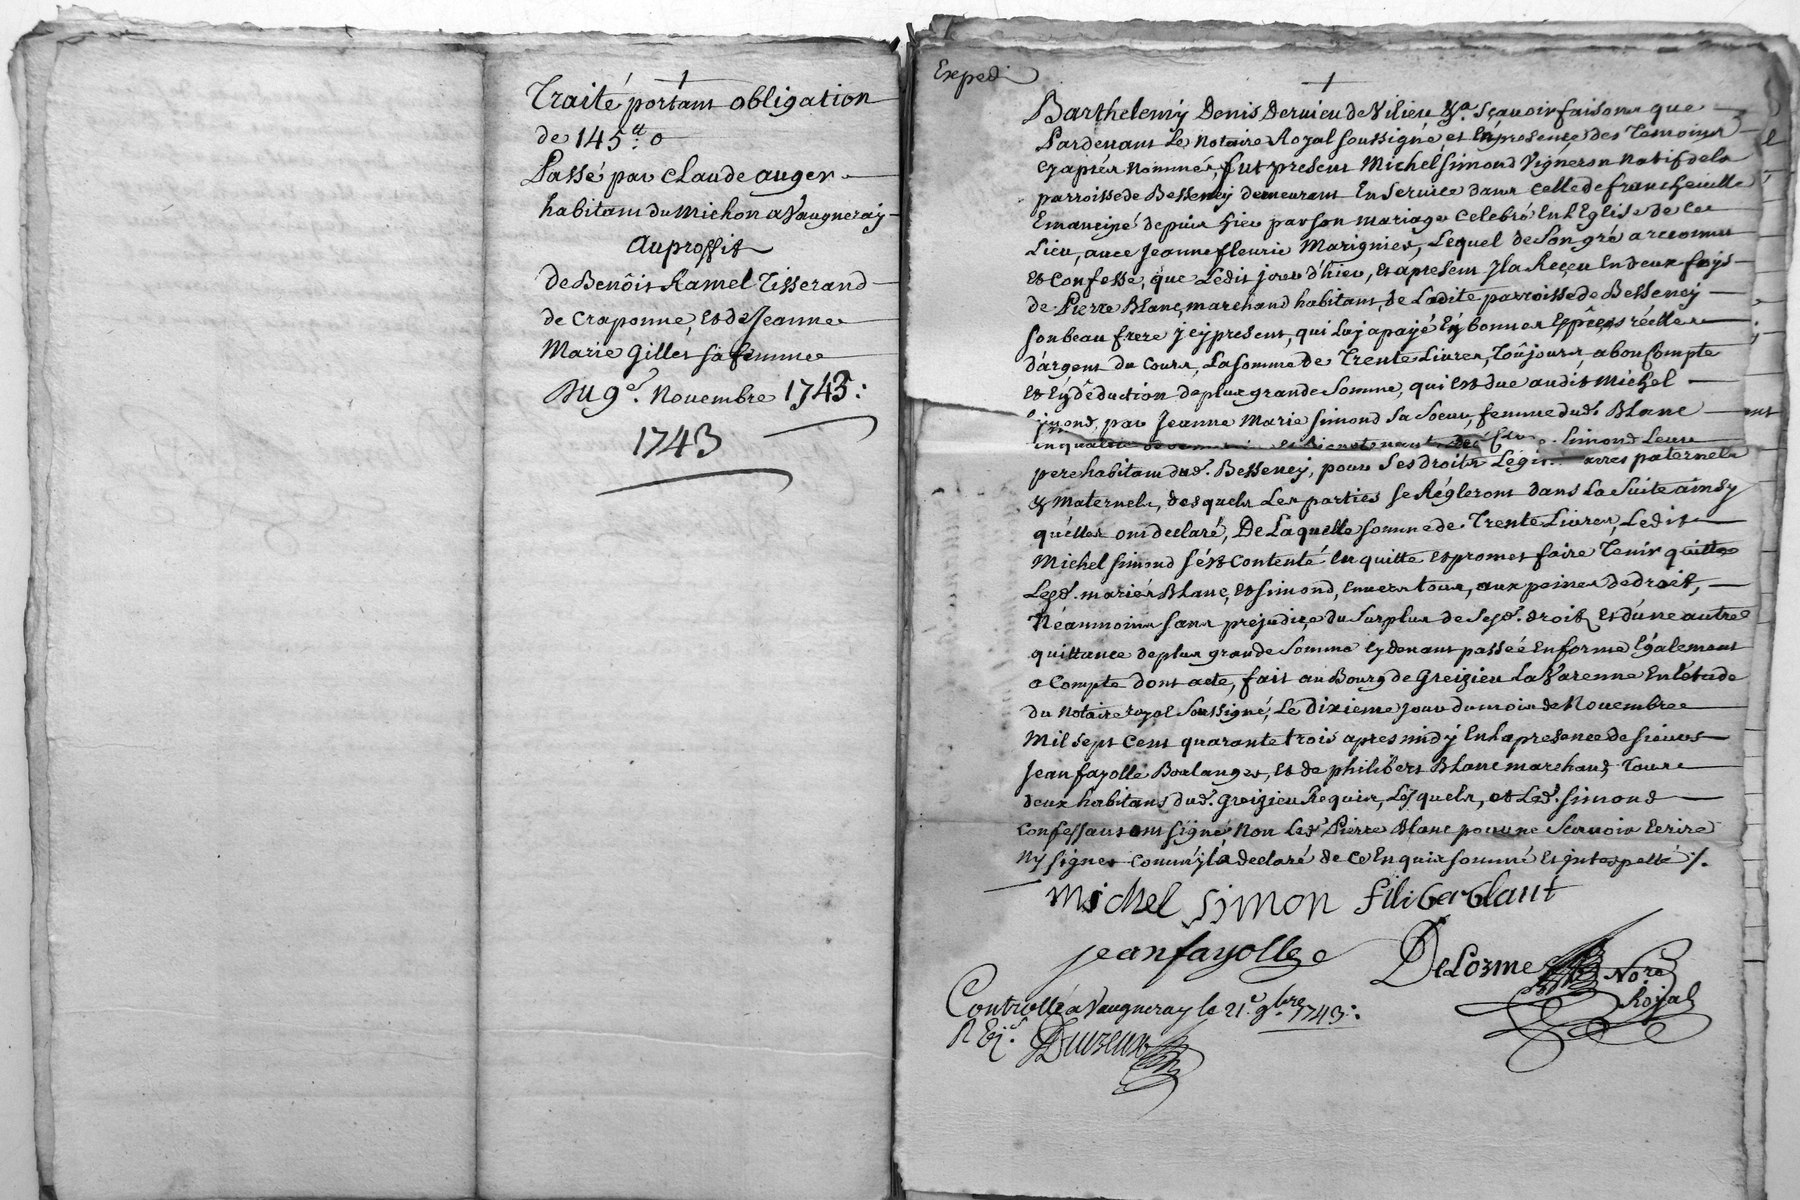 Traité portant obligation
de 145.tt 0
Passé par Claude auger
habitant du Michon a Vaugneray
Auproffit
de Benôit Ramel Tisserand
de Craponne, et de Jeanne
Marie Gillet sa femme
Du 9e. Novembre 1743:
1743
Exped
Barthelemy Denis Dervieu de Vilieu &a. sçavoir faisons que
Pardevant Le Notaire Royal soussigné, et En presence des Temoins
cy aprés Nommés, fut present Michel Simond Vigneron Natif de la
parroisse de Bessenay demeurant En service dans celle de francheville
Emancipé depuis hier par son mariage celebré En l'Eglise de ce
Lieu, avec Jeanne fleurie Marignier, Lequel de son gré a reconnu
et confessé, que Ledit jour d'hier, et apresent Il a Reçeu En deux foys
de Pierre Blanc, marchand habitant, de Ladite parroisse de Bessenay
son beau frere jcy present, qui Luy a payé En bonnes Espéces réelles
d'argent du cours, La somme de Trente Livres, Toûjours a bon Compte
et En déduction de plus grande somme, qui est due audit Michel
Simond, par Jeanne Marie Simond sa soeur, femme dud. Blanc
En qualité de et bientenant de Simond Leur
pere habitant dud. Bessenay, pour ses droits Legit paternels
& Maternels, desquels Les parties se Régleront dans La suite ainsy
qu'elles ont declaré, De Laquelle somme de Trente Livres, Ledit
Michel Simond s'ést Contenté En quitte et promet faire Tenir quittes
Lesd. mariés Blanc, et Simond, Envers tous, aux peines de droit,
Néanmoins sans préjudice du surplus de sesd. droits et d'une autre
quittance de plus grande somme cydevant passée En forme Egalement
a Compte dont acte, fait au Bourg de Greizieu La Varenne En l'étude
du Notaire royal soussigné, Le Dixieme jour du mois de Novembre
Mil sept Cent quarante trois apres midy En La presence de sieurs
Jean fayolle Boulanger, et de philibert Blanc marchand, Tous
deux habitans dud. Greizieu Requis, Lesquels, et Led. Simond
Confessant ont signé Non Led. Pierre Blanc pour ne sçavoir Ecrire
Ny signer comm'jl a declaré de ce Enquis sommé et jnterpellé ./.
Michel Simon filiberblant
jean fayolle
DeLorme Nore
Royal
Controllé a Vaugneray le 21e. 9bre 1743: